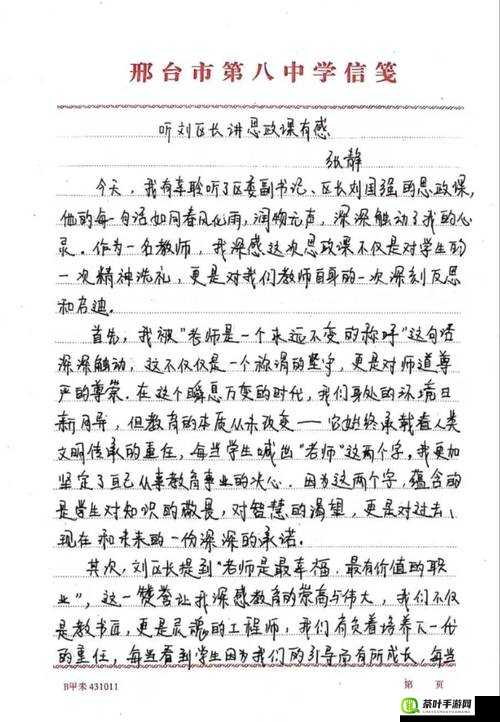 邢台市第八中学信笺
听刘区长讲思政课有感
张静
今天，我有幸聆听了区委副书记、区长刘国强的思政课，
他的每一句话如同春风化雨，润物无声，深深触动了我的心
灵。作为一名教师，我深感这次思政课不仅是对学生的
一次精神洗礼，更是对我们教师自身的一次深刻反思
和启迪。
首先，我被“老师是一个永远不变的称呼”这句话
深深触动，这不仅仅是一个称谓的坚守，更是对师道尊
严的尊崇。在这个瞬息万变的时代，我们身处的环境日
新月异，但教育的本质从未改变——它始终承载着人类
文明传承的重任，每当学生喊出“老师”这两个字，我更加
坚定了自己从事教育事业的决心。因为这两个字，蕴含的
是学生对知识的敬畏，对智慧的渴望，更是对过去、
现在和未来的一份深深的承诺。
其次，刘区长提到“老师是最幸福、最有价值的职
业”，这一赞誉让我深感教育的崇高与伟大，我们不仅
是教书匠，更是灵魂的工程师，我们肩负着培养下一代
的重任，每当看到学生因为我们的引导而有所成长，每当
B甲米 431011
第 页
茶叶手游网